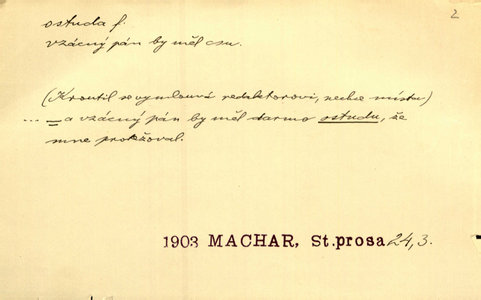 2
ostuda f.
vzácný pán by měl osu.
(Kroutil se vymlouvá redaktorovi, nechce místu)
... = a vzácný pán by měl darmo ostudu, že
mne protežoval.
1903 MACHAR, St.prosa 24,3.